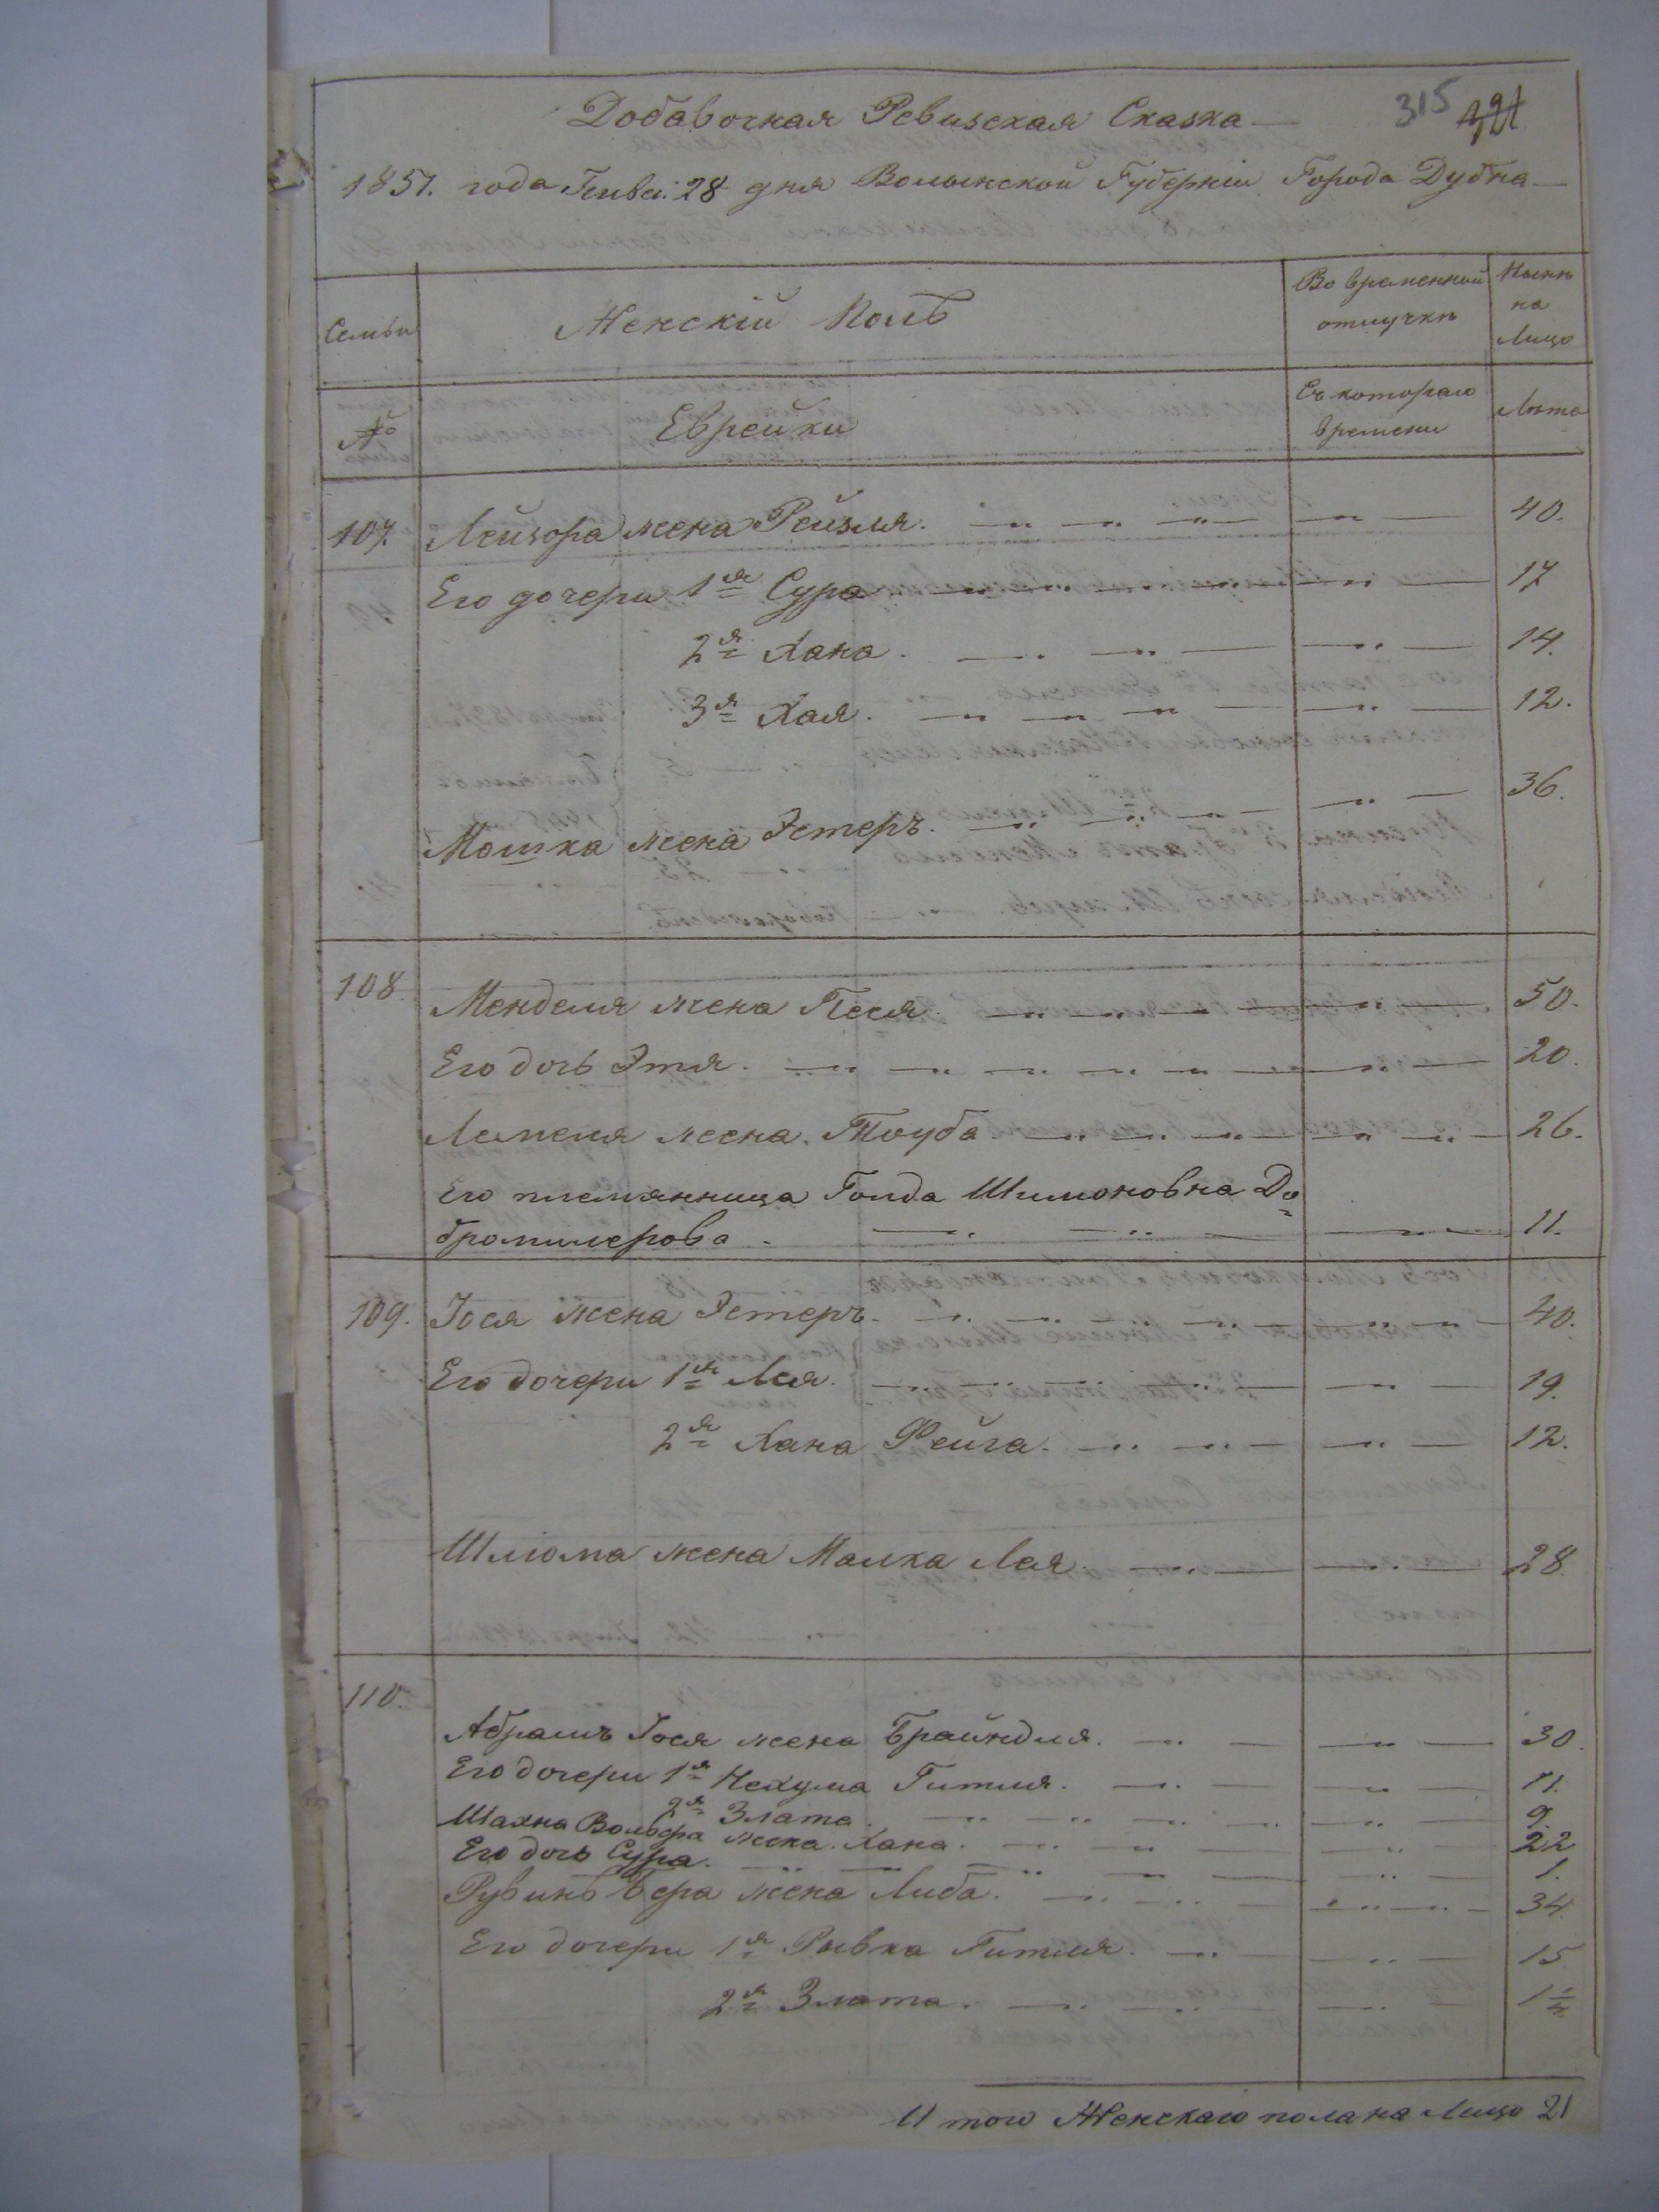 315
Добавочная Ревизская Сказка
1851. года Генва: 28 дня Волынской Губернiи Города Дубна
Семьи
Женскiй Полъ
Во временной отлучкѣ
Нынѣ на Лицо
№
Еврейки
Съ котораго времени
Лѣта
107. Лейзора жена Рейзля. 40.
Его дочери 1я Сура 17
2я Хана. 14.
3я Хая. 12.
Мошка жена Эстеръ. 36.
108. Менделя жена Песя. 50.
Его дочь Этя. 20.
Лемеля жена Тоуба 26.
Его племянница Голда Шимоновна До
бромилерова. 11.
109. Iося жена Эстеръ. 40.
Его дочери 1я Лея. 19.
2я Хана Фейга. 12.
Шлiома жена Малка Лея. 28.
110.
Абрамъ Iося жена Брайндля. 30.
Его дочери 1я Нехума Гитля. 11.
2я Злата. 9.
Шахна Вольфа жена Хана. 22
Его дочь Сура. 1.
Рувинъ Бера жена Либа. 34.
Его дочери 1я Рывка Гитля. 15.
2я Злата. 1
Итого Женскаго пола на Лицо 21